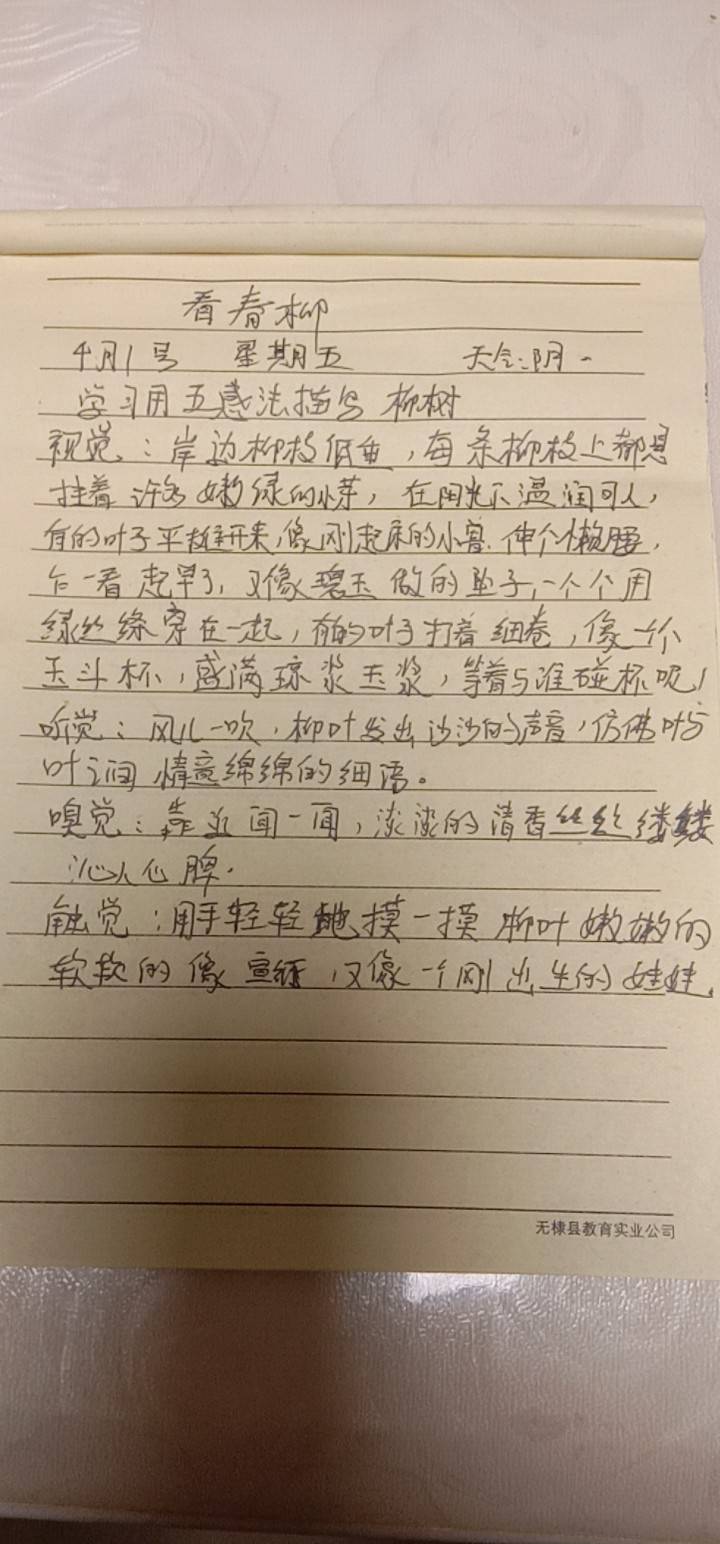 看春柳
4月1号 星期五 天气:阴
学习用五感法描写 柳树
视觉：岸边柳枝低垂，每条柳枝上都悬
挂着许多嫩绿的小芽，在阳光下温润可人，
有的叶子平展开来,像刚起床的小 伸个懒腰，
乍一看起 ，又像碧玉做的 子,一个个用
绿丝绦穿在一起，有的叶子打着细卷，像一个
玉斗杯，盛满琼浆玉浆，等着与谁碰杯呢！
听觉：风儿一吹，柳叶发出沙沙的声音，仿佛叶与
叶之间情意绵绵的细语。
嗅觉：靠近闻一闻，淡淡的清香丝丝缕缕
沁人心脾.
触觉：用手轻轻地摸一摸 柳叶嫩嫩的
软软的像宣纸，又像一个刚出生的娃娃.
无棣县教育实业公司